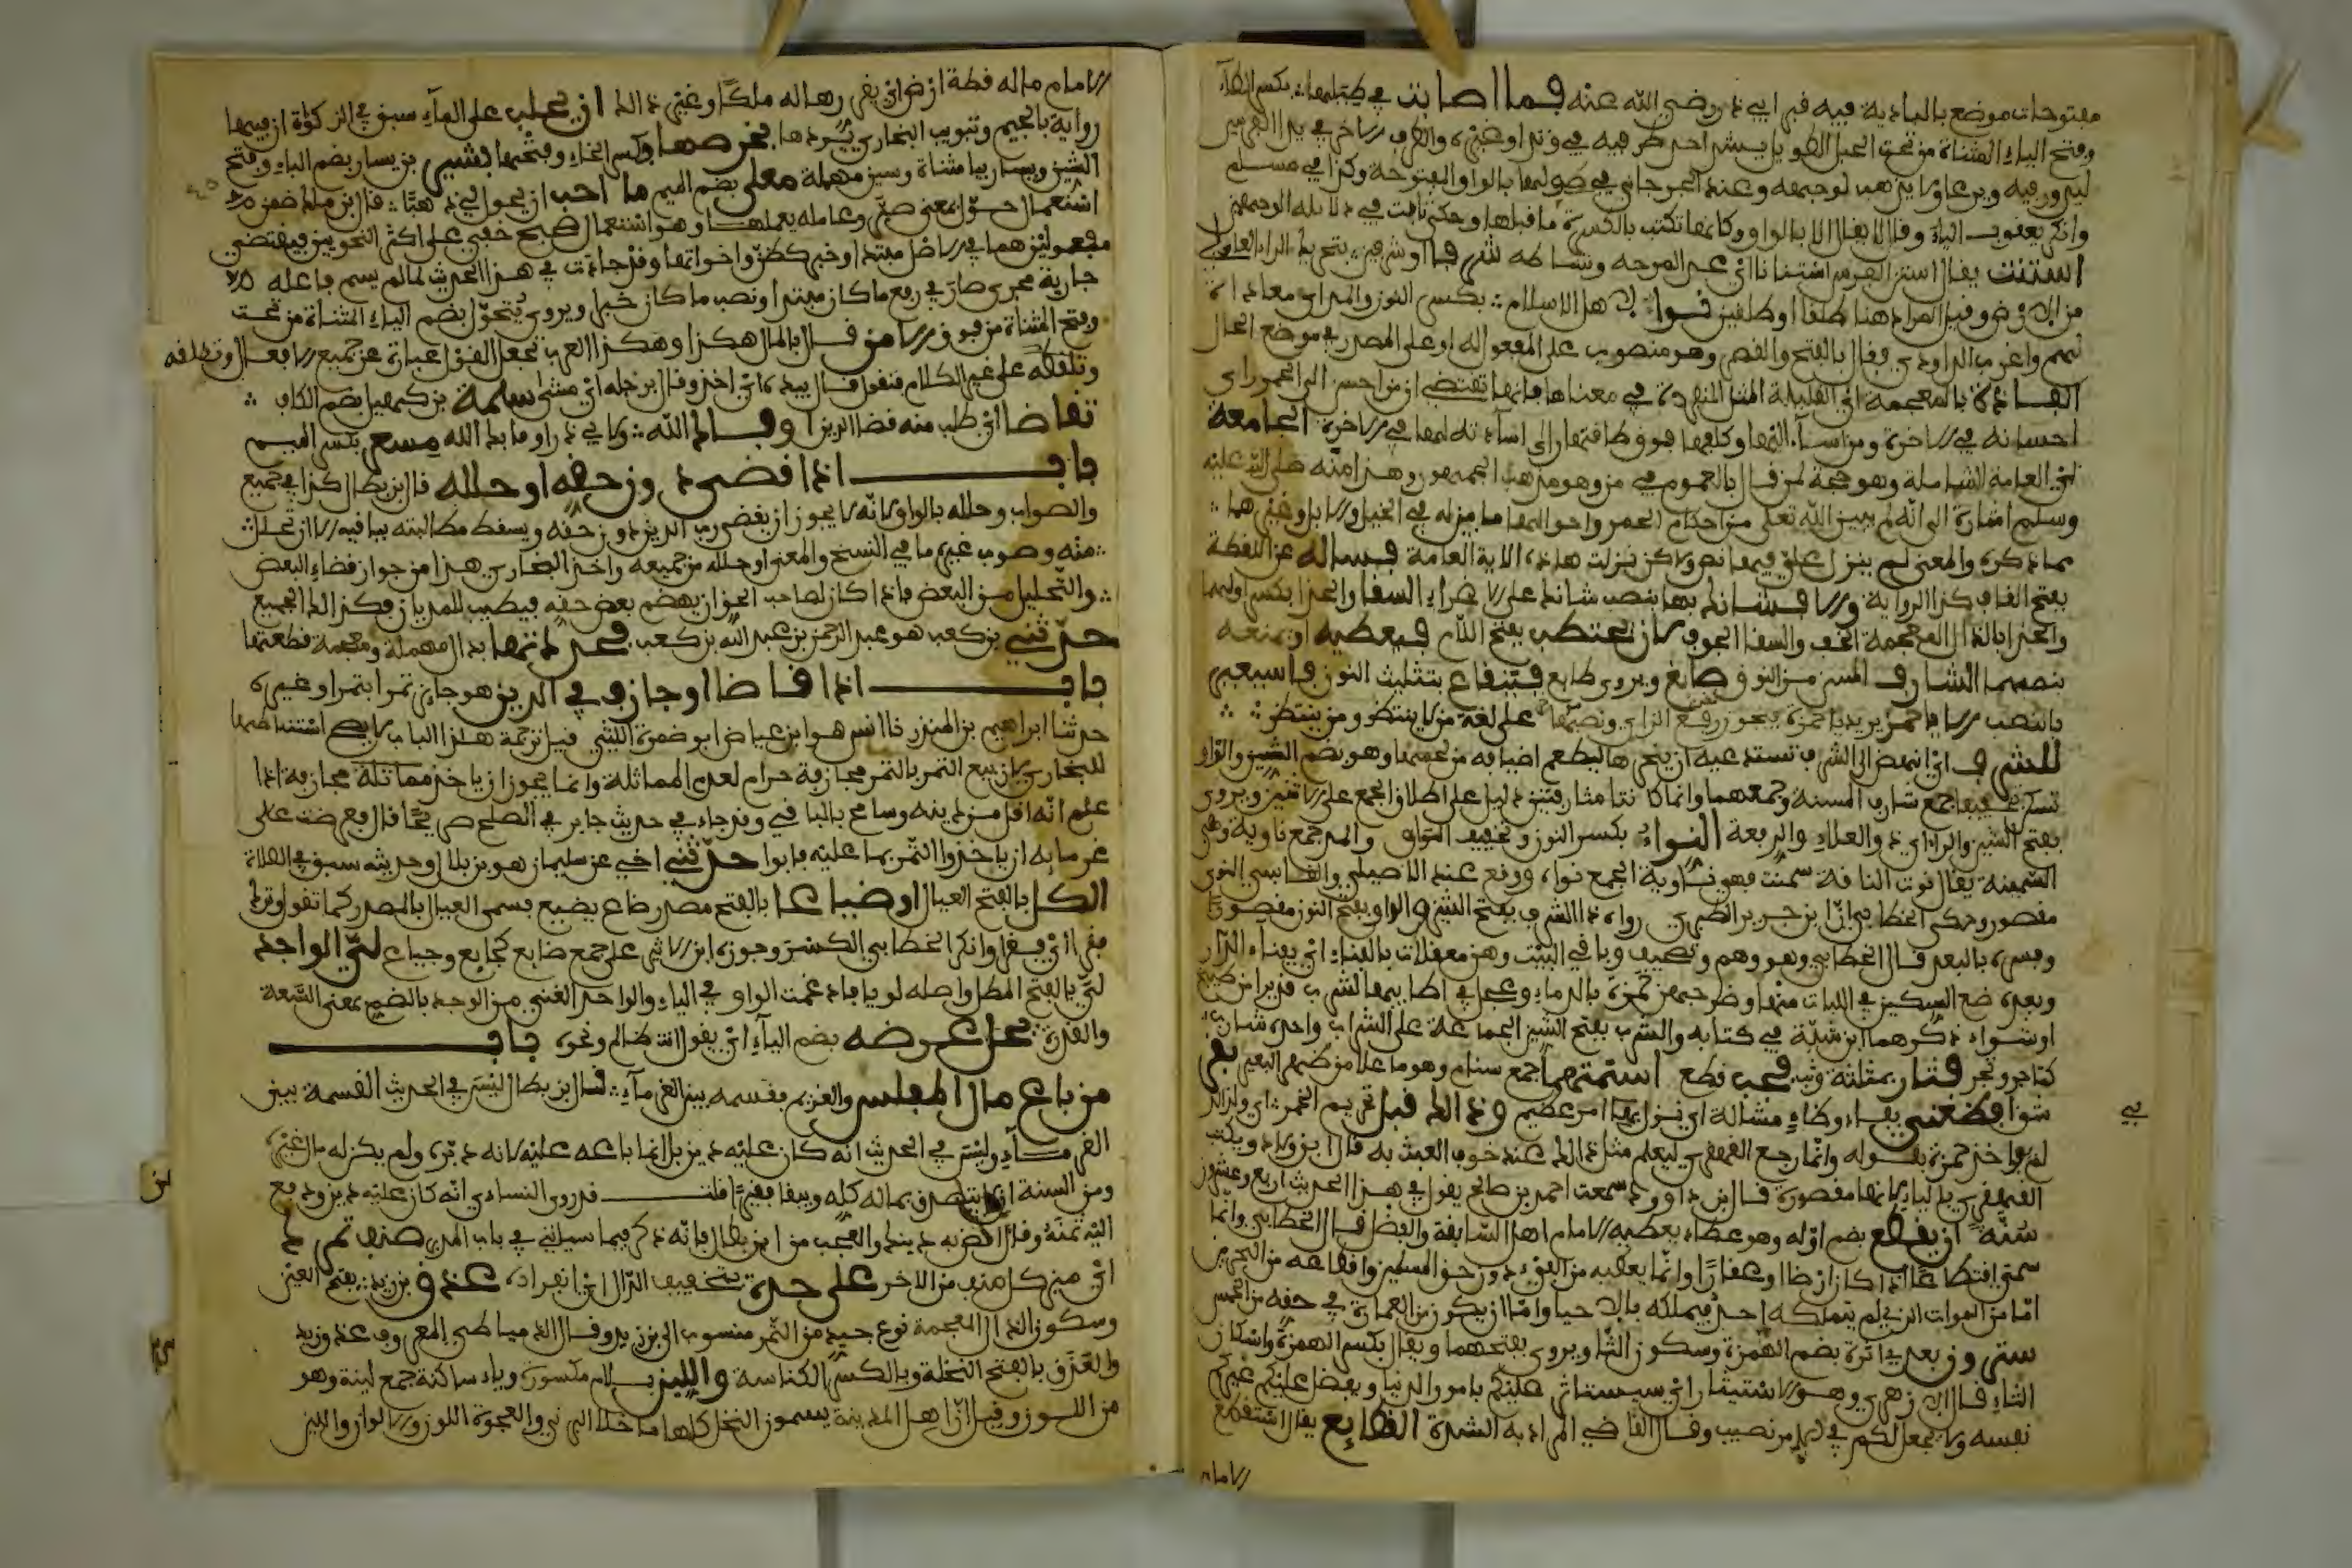 مفتوحات موضع بالبادية فيه قبر ابي ذر رضي الله عنه فما اصابت في طيلها بكسر الطاء
وفتح الياء المثناة من تحت الحبل الطويل يشد احد طرفيه في وتد او غيره والطرف الاخر في يد الفرس
ليدور فيه ويرعى ولا يذهب لوجهه وعند الجرجاني في طولها بالواو المفتوحة وكذا في مسلم
وانكر يعقوب الياء وقال لا يقال الا بالواو
استنت يقال استن الفرس استنانا اي عدا لمرحه ونشاطه شرفا او شرفين
من الارض وقيل المراد هنا طلقا او طلقين نواء لاهل الاسلام بكسر النون والمد اي معاداة
لهم واغرب الداودي فقال بالفتح والقصر وهو منصوب على المفعول له او على المصدر في موضع الحال
الفاذة بالمعجمة اي القليلة المثل المنفردة في معناها فانها تقتضي ان من احسن الى الحمر راى
احسانه في الاخرة ومن اساء اليها وكلفها فوق طاقتها راى اساءته لها في الاخرة الجامعة
اي العامة الشاملة وهو حجة لمن قال بالعموم في من وهو مذهب الجمهور وهذا منه صلى الله عليه
وسلم اشارة الى انه لم يبين الله تعالى من احكام الحمر واحوالها ما بين له في الخيل والابل وغيرهما
مما ذكره والمعنى لم ينزل علي فيها نص ولاكن نزلت هاذه الاية العامة فساله عن اللقطة
بفتح القاف كذا الرواية والا فشانك بها بنصب شانك على الاغراء السقا والحذا بكسر اولهما
والحذا بالذال المعجمة الخف والسقا الجوف لان يحتطب بفتح اللام فيعطيه او يمنعه
بنصبهما الشارف المسن من النوق صايغ ويروى طابع قينقاع بتثليث النون فاستعين
بالنصب الا يا حمز يريد يا حمزة يجوز رفع الزاي ونصبها على لغة من لا ينتظر ومن ينتظر
للشرف اي انهض الى الشرف تستدعيه ان ينحرها ليطعم اضيافه من لحمها وهو بضم الشين والراء
بفتح الشين والراء اي ذي والعلاء والرفعة النواء بكسر النون وتخفيف الواو والمد جمع ناوية وهي
السمينة يقال نوت الناقة سمنت فهي ناوية الجمع نواء ووقع عند الاصيلي والقابسي النوى
مقصور وحكى الخطابي ان ابن جرير الطبري رواه ذا الشرف بفتح الشين والراو وبفتح النون مقصورا
وفسره بالبعد قال الخطابي وهو وهم وتصحيف وباقي البيت وهن معقلات بالفناء اي بفناء الدار
وبعده ضع السكين في اللبات منها وضرجهن حمزة بالدماء وعجل في اطايبها لشرب قديدا من طبيخ
او شواء ذكرهما ابن شبة في كتابه والشرب بفتح الشين الجماعة على الشراب واحده شارب
كتاجر وتجر فثار بمثلثة وثب فجب قطع اسنمتهما جمع سنام وهو ما علا من ظهر البعير بقر
شق افظعني بفاء وظاء مشالة اي نزل بي امر عظيم وذالك قبل تحريم الخمر اي ولذالك
لم يواخذ حمزة بقوله وانما رجع القهقرى ليعلم مثل ذالك عند خوف العبث به
سترون بعدي اثرة بضم الهمزة وسكون الثا ويروى بفتحهما ويقال بكسر الهمزة واسكان
الثاء قال الازهري وهو الاستيثار اي يستاثر عليكم بامور الدنيا ويفضل عليكم غيركم
نفسه ولا يجعل لكم في الامر نصيب وقال القاضي المراد به الشدة القطايع يقال استقطع
الامام
الامام ماله قطة ارض اي يفي رهاله ملكا وغير ذالك ان يحلب على الماء سبق في الزكاة ان فيها
رواية بالجيم وتبويب البخاري يردها بخرصها بكسر الخاء وفتحها بشير بن يسار بضم الباء وفتح
الشين ويسار بيا مثناة وسين مهملة معلى بضم الميم ما احب ان يحول لي ذهبا قال ابن مالك تضمن الا
استعمال حول بمعنى صير وعامله يعملها وهو استعمال صحيح خفي على اكثر النحويين فيقتضي
مفعولين هما في الاصل مبتدا وخبر كظن واخواتها وقد جاءت في هذا الحديث لما لم يسم فاعله
جارية مجرى صار في رفع ما كان مبتدا ونصب ما كان خبرا ويروى يتحول بضم الياء المثناة من تحت
وفتح المثناة من فوق الا من قال بالمال هكذا وهكذا العرب تجعل القول عبارة عن جميع الافعال وتطلقه
وتلفظه على غير الكلام فتقول قال بيده اي اخذ وقال برجله اي مشى سلمة بن كهيل بضم الكاف
تقاضا اي طلب منه قضا الدين اوفاك الله ولابي ذر اوفا بك الله مسعر بكسر الميم
باب اذا قضى دون حقه او حلله قال ابن بطال كذا في جميع
والصواب وحلله بالواو لانه لا يجوز ان يقضي رب الدين دون حقه ويسقط مطالبته بباقيه الا ان تحلل
منه وصوب غيره ما في النسخ والمعنى او حلله من جميعه واخذ البخاري هذا من جواز قضاء البعض
والتحليل من البعض فاذا كان لصاحب الحق ان يهضم بعض حقه فيطيب للمديان فكذالك الجميع
حدثني بن كعب هو عبد الرحمن بن عبد الله بن كعب فجددتها بدال مهملة ومعجمة قطعتها
باب اذا قاضا او جازفه في الدين هو جايز تمرا بتمر او غيره
حدثنا ابراهيم بن المنذر نا انس هو ابن عياض ابو ضمرة الليثي قيل ترجمة هذا الباب لا يصح استنباطها
للبخاري لان بيع التمر بالتمر مجازفة حرام لعدم المماثلة وانما يجوز ان ياخذ مماثلة مجازفة اذا
علم انه اقل من دينه وسامح بالباقي وقد جاء في حديث جابر في الصلح صريحا قال فعرضت على
غرمايه ان ياخذوا التمر بما عليه فابوا حدثني اخي عن سليمان هو بن بلال وحديثه سبق في الصلاة
الكل بالفتح العيال او ضياعا بالفتح مصدر ضاع يضيع فسمى العيال بالمصدر كما تقول وترك
فقرا اي فقرا وانكر الخطابي الكسر وجوزه ابن الاثير على جمع ضايع كجايع وجياع لي الواجد
لي بالفتح المطل واصله لويا فادغمت الواو في الياء والواجد الغني من الوجد بالضم بمعنى السعة
والقدرة يحل عرضه بضم الياء اي يقول انت ظالم ونحوه باب
من باع مال المفلس والغريم فقسمه بين الغرماء قال ابن بطال ليس في الحديث القسمة بين
الغرماء وليس في الحديث انه كان عليه دين بل انما باعه عليه لانه دبره ولم يكن له مال غيره
ومن السنة ان لا يتصرف بماله كله ويبقا فقيرا قلت قد روى النساءي انه كان عليه دين ودفع
اليه ثمنه وقال اقض به دينك والعجب من ابن بطال فانه ذكر فيما سياتي في باب المدبر صنف تمرك
اي ميز كل صنف من الاخر على حدة بتخفيف الدال اي انفراد عذق بن زيد بفتح العين
وسكون الذال المعجمة نوع جيد من التمر منسوب الى ابن زيد وقال الدمياطي المعروف عذق زيد
والعذق بالفتح النخلة وبالكسر الكناسة واللين بلام مكسورة وياء ساكنة جمع لينة وهو
من اللون وقيل ان اهل المدينة يسمون النخل كلها ما خلا البرني والعجوة اللون والالوان واللين